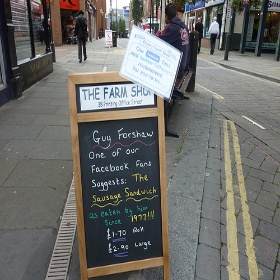 THE FARM SHOP
38 Printing Office Street
Guy Forshaw
One of our
Facebook Fans
Suggests: The
Sausage Sandwich
as eaten by him
Since 1977!!!
£1.70 Reg
£2.90 Large